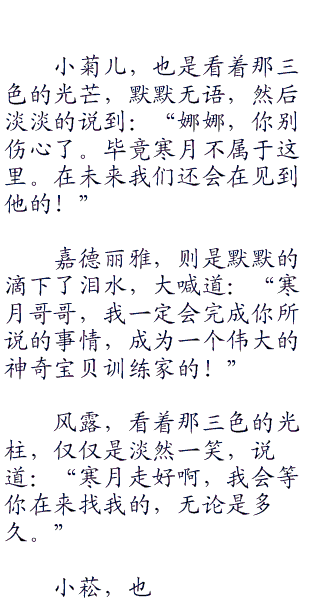 小菊儿，也是看着那三
色的光芒，默默无语，然后
淡淡的说到：“娜娜，你别
伤心了。毕竟寒月不属于这
里。在未来我们还会在见到
他的！”
嘉德丽雅，则是默默的
滴下了泪水，大喊道：“寒
月哥哥，我一定会完成你所
说的事情，成为一个伟大的
神奇宝贝训练家的！”
风露，看着那三色的光
柱，仅仅是淡然一笑，说
道：“寒月走好啊，我会等
你在来找我的，无论是多
久。”
小菘，也